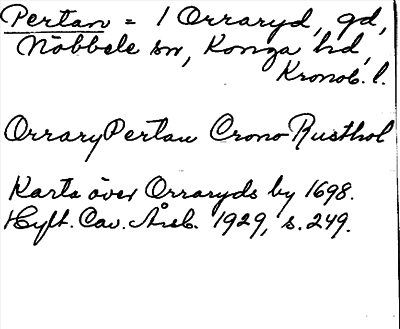 Pertan = 1 Orraryd, gd,
Nöbbele sn, Konga hd,
Kronob. l.
Orrary Pertan Crono Rusthol
Karta över Orraryds by 1698.
Hylt. Cav. Årsb. 1929, s. 249.